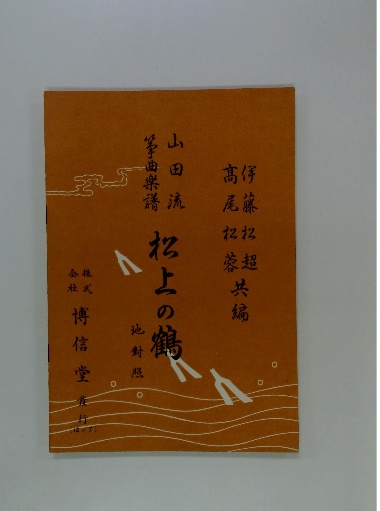 伊藤松超
高尾松蓉 共編
山田流
箏曲楽譜
松上の鶴
地對照
株式
会社
博信堂 発行